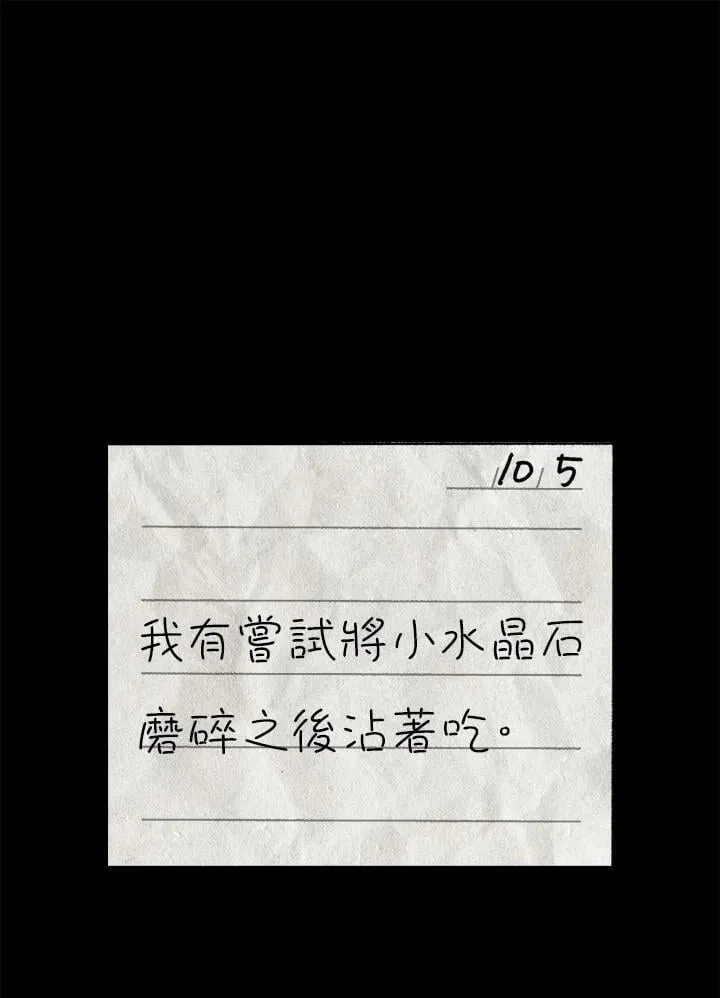 /10/ 5
我有嘗試將小水晶石
磨碎之後沾著吃。